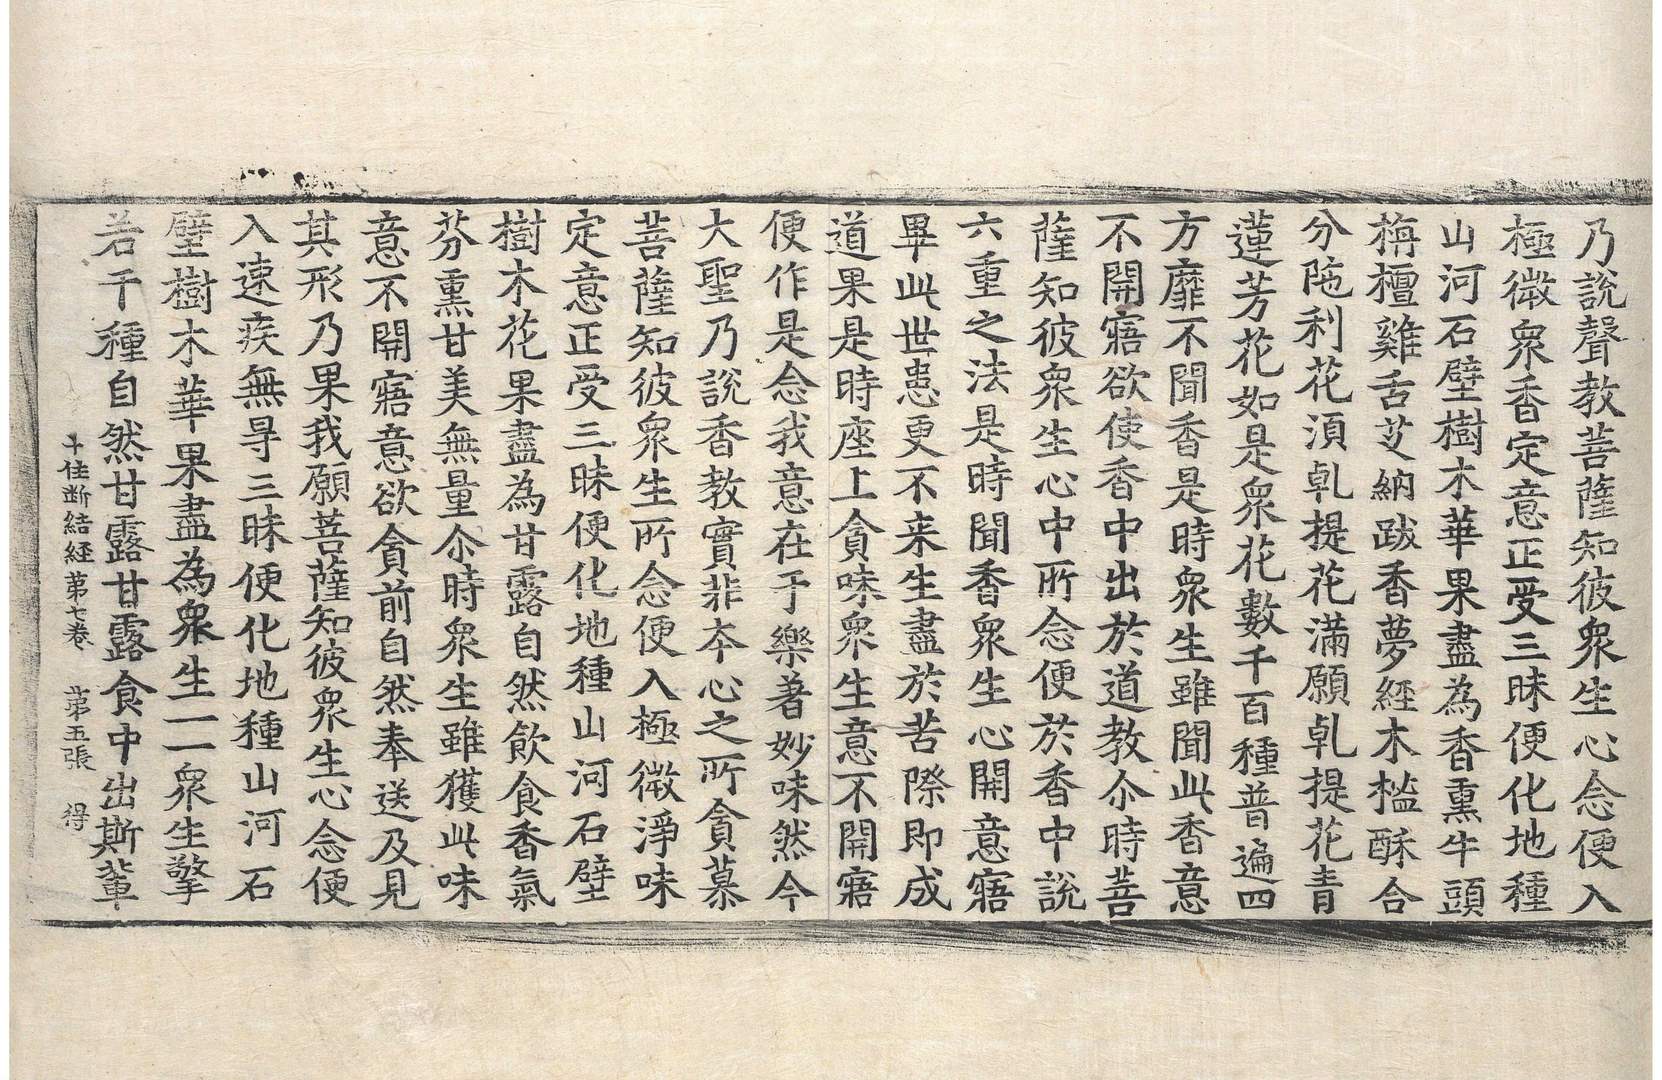 乃說聲教菩薩知彼衆生心念便入
極微衆香定意正受三昧便化地種
山河石壁樹木華果盡為香熏牛頭
栴檀雞舌艾納跋香夢經木榓酥合
分陁利花湏乹提花滿願乹提花青
蓮芳花如是衆花數千百種普遍四
方靡不聞香是時衆生雖聞此香意
不開寤欲使香中出於道教尒時菩
薩知彼衆生心中所念便於香中說
六重之法是時聞香衆生心開意寤
畢此世患更不来生盡於苦際即成
道果是時座上貪味衆生意不開寤
便作是念我意在于樂著妙味然今
大聖乃說香教實非夲心之所貪慕
菩薩知彼衆生所念便入極微淨味
定意正受三昧便化地種山河石壁
樹木花果盡為甘露自然飲食香氣
芬熏甘美無量尒時衆生雖獲此味
意不開寤意欲貪前自然奉送及見
其形乃果我願菩薩知彼衆生心念便
入速疾無㝵三昧便化地種山河石
壁樹木華果盡為衆生一一衆生擎
若干種自然甘露甘露食中出斯輩
十住断結經第七卷　第五張　得